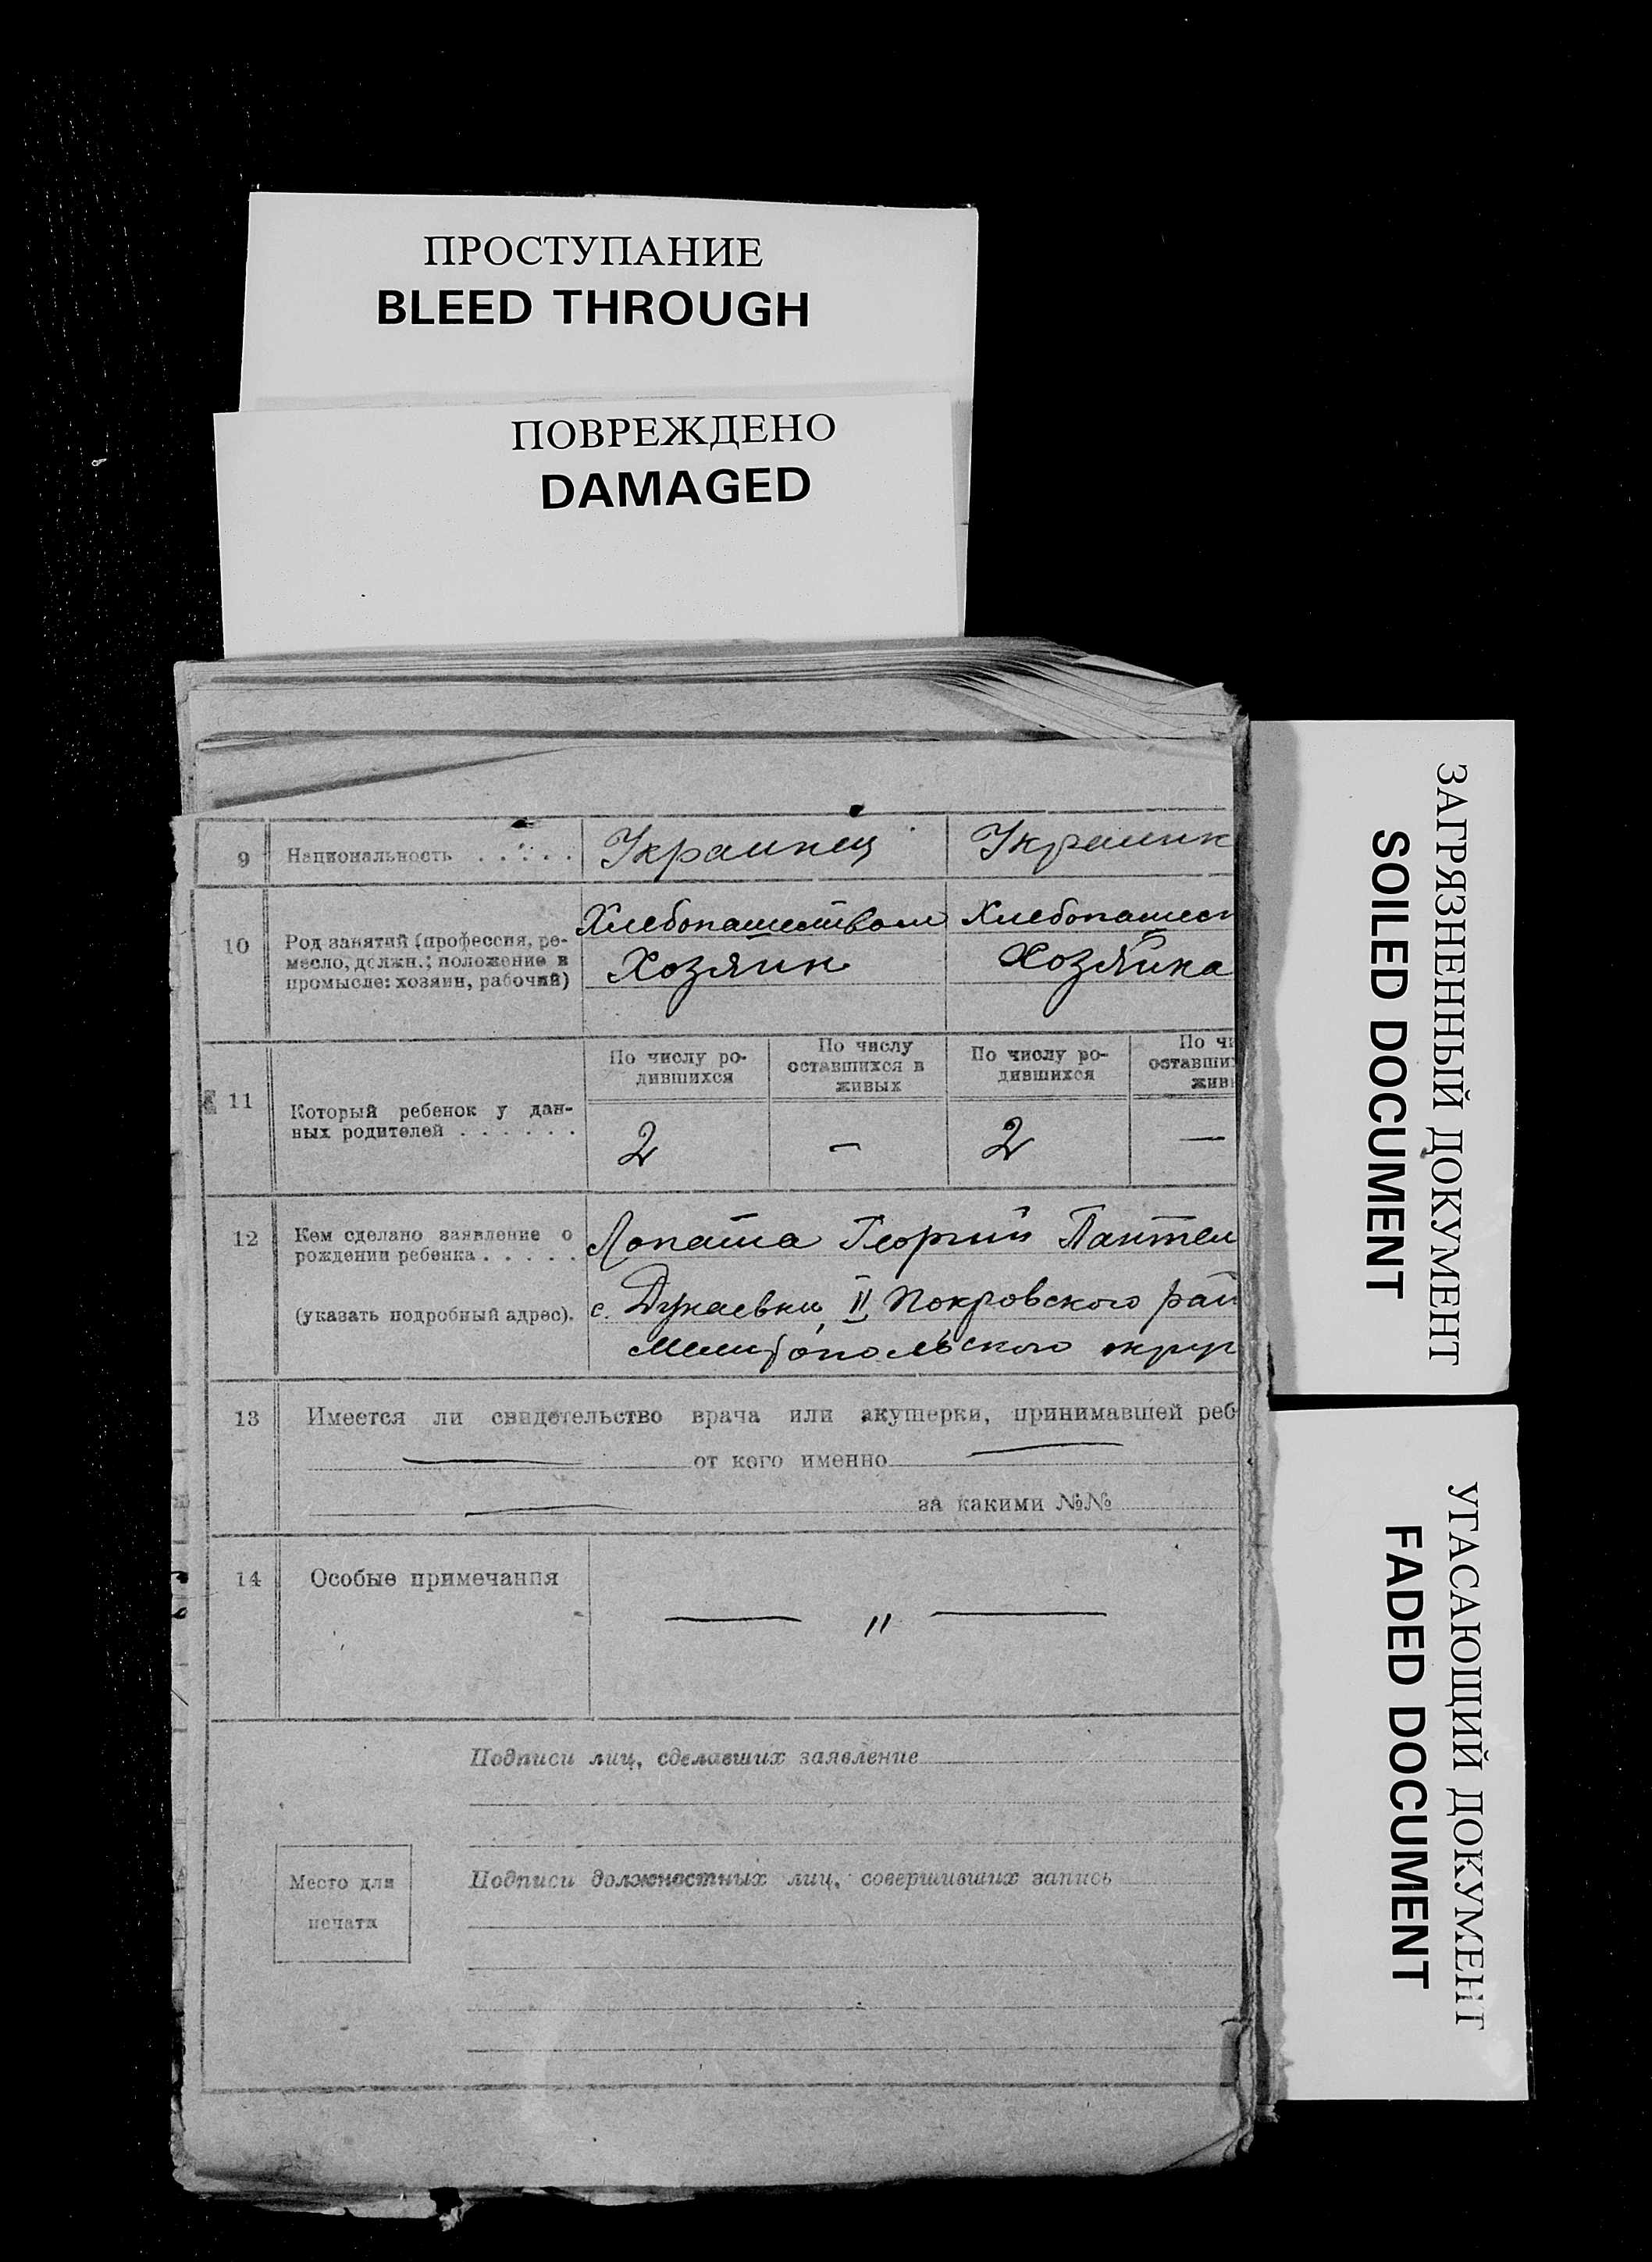 ПРОСТУПАНИЕ
BLEED THROUGH
ПОВРЕЖДЕНО
DAMAGED
ЗАГРЯЗНЕННЫЙ ДОКУМЕНТ
SOILED DOCUMENT
УГАСАЮЩИЙ ДОКУМЕНТ
FADED DOCUMENT
9 Национальность . . . . . Украинец Украинк
10 Род занятий (профессия, ре-
месло, должн.; положение в
промысле: хозяин, рабочий)
Хлебопашеством Хлебопашест
Хозяин Хозяйка
11 Который ребенок у дан-
ных родителей . . . . . .
По числу ро-
дившихся
По числу
оставшихся в
живых
По числу ро-
дившихся
По чи
оставших
живы
2 — 2 —
12 Кем сделано заявление о
рождении ребенка . . . . .
(указать подробный адрес).
Лопата Георгий Пантел
с. Дунаевки II Покровского рай
Мелитопольского округ
13 Имеется ли свидетельство врача или акушерки, принимавшей реб
от кого именно
за какими №№
14 Особые примечания
— " —
Подписи лиц, сделавших заявление
Место для
печати
Подписи должностных лиц, совершивших запись